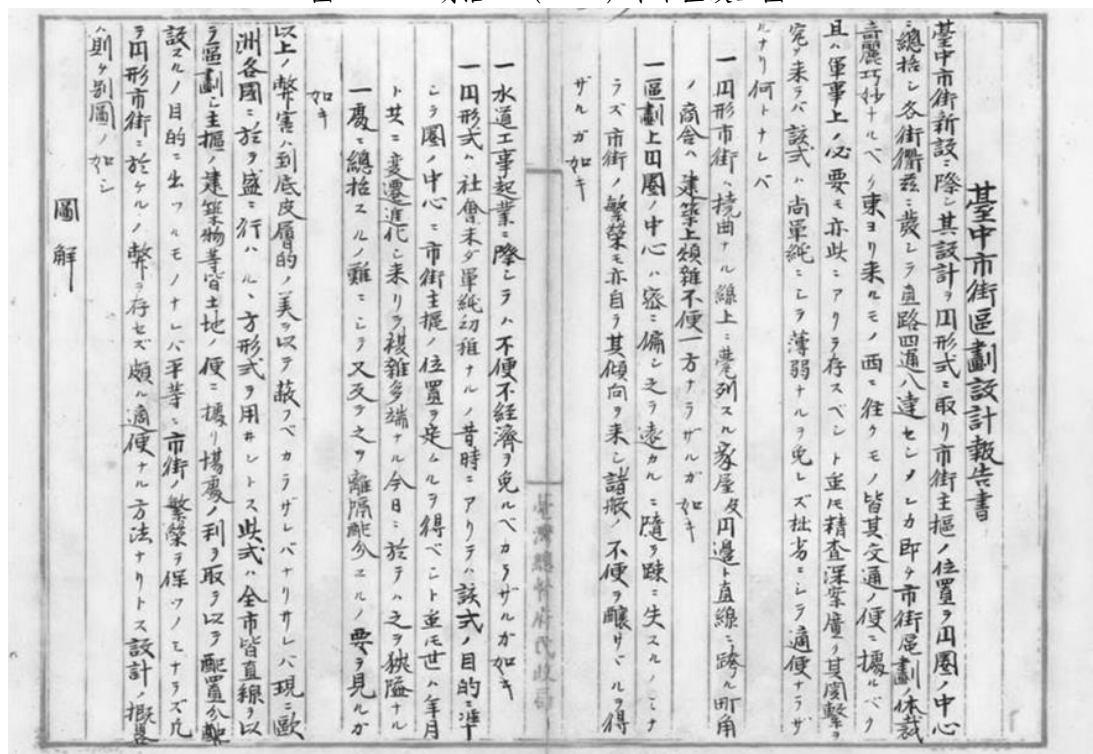 臺中市街區劃設計報告書
臺中市街新設ニ際シ其設計ヲ円形式ニ取リ市街主摳ノ位置ヲ円圏ノ中心
ニ總括シ各街衢茲ニ發シテ直路四通八達セシメンカ即チ市街區劃ノ体裁
奇麗巧妙ナルベク東ヨリ来ルモノ西ニ往クモノ皆其交通ノ便ニ據ルベク
且ハ軍事上ノ必要モ亦此ニアリテ存スベシト虽モ精査深案廣ク其関繫ヲ
究メ来ラバ該式ハ尚單純ニシテ薄弱ナルヲ免レズ拙劣ニシテ適便ナラザ
ルナリ何トナレバ
一円形市街ハ撓曲ナル線上ニ羅列スル家屋及円邊ト直線ニ跨ル町角
ノ商舎ハ建築上煩雜不便一方ナラザルガ如キ
一區劃上円圏ノ中心ハ密ニ偏シ之ヲ遠カルニ隨ヲ踈ニ失スルノミナ
ラズ市街ノ繁榮モ亦自ラ其傾向ヲ来シ諸般ノ不便ヲ釀サヾルヲ得
ザルガ如キ
一水道工事起業ニ際シテハ不便不経濟ヲ免ルベカラザルガ如キ
一円形式ハ社會未ダ單純幼稚ナルノ昔時ニアリテハ該式ノ目的ニ準
シテ圏ノ中心ニ市街主摳ノ位置ヲ定ムルヲ得ベシト虽モ世ハ年月
ト共ニ変遷進化シ来リテ複雜多端ナル今日ニ於テハ之ヲ狹隘ナル
一處ニ總括スルノ難ニシテ又反テ之ヲ離隔配分スルノ要ヲ見ルガ
如キ
以上ノ弊害ハ到底皮層的ノ美ヲ以テ蔽フベカラザレバナリサレバ現ニ歐
洲各國ニ於テ盛ニ行ハルヽ方形式ヲ用ヰントス此式ハ全市皆直線ヲ以
テ區劃シ主摳ノ建築物等皆土地ノ便ニ據リ場處ノ利ヲ取テ以テ配置分
設スルノ目的ニ出ツルモノナレバ平等ニ市街ノ繁榮ヲ保ツノミナラズ凡
テ円形市街ニ於ケルノ弊ヲ存セズ頗ル適便ナル方法ナリトス設計ノ概畧
ハ則ケ別圖ノ如シ
圖解
臺灣總督府